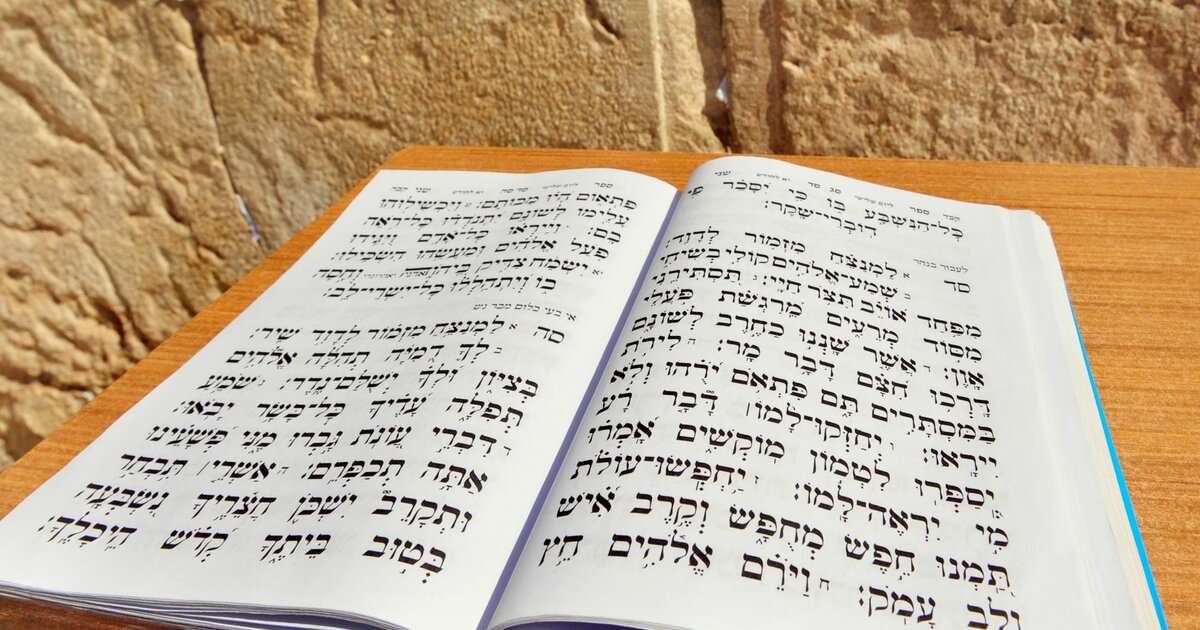 ספר ליום שלישי סג סד יא לחודש שני
כָּל־הַנִּשְׁבָּע בּוֹ כִּי יִסָּכֵר פִּי
דוֹבְרֵי־שָׁקֶר:
לעבור בנהר
סד א לַמְנַצֵּחַ מִזְמוֹר לְדָוִד:
ב שְׁמַע־אֱלֹהִים קוֹלִי בְשִׂיחִי
מִפַּחַד אוֹיֵב תִּצֹּר חַיָּי: ג תַּסְתִּירֵנִי
מִסּוֹד מְרֵעִים מֵרִגְשַׁת פֹּעֲלֵי
אָוֶן: ד אֲשֶׁר שָׁנְנוּ כַחֶרֶב לְשׁוֹנָם
דָּרְכוּ חִצָּם דָּבָר מָר: ה לִירֹת
בַּמִּסְתָּרִים תָּם פִּתְאֹם יֹרֻהוּ וְלֹא
יִירָאוּ: ו יְחַזְּקוּ־לָמוֹ ׀ דָּבָר רָע
יְסַפְּרוּ לִטְמוֹן מוֹקְשִׁים אָמְרוּ
מִי יִרְאֶה־לָּמוֹ: ז יַחְפְּשׂוּ־עוֹלֹת
תַּמְנוּ חֵפֶשׂ מְחֻפָּשׂ וְקֶרֶב אִישׁ
וְלֵב עָמֹק: ח וַיֹּרֵם אֱלֹהִים חֵץ
ספר ליום שלישי סד סה יא לחודש שני
פִּתְאוֹם הָיוּ מַכּוֹתָם: ט וַיַּכְשִׁילוּהוּ
עָלֵימוֹ לְשׁוֹנָם יִתְנֹדֲדוּ כָּל־רֹאֵה
בָם: י וַיִּירְאוּ כָּל־אָדָם וַיַּגִּידוּ
פֹּעַל אֱלֹהִים וּמַעֲשֵׂהוּ הִשְׂכִּילוּ:
יא יִשְׂמַח צַדִּיק בַּיהוָה וְחָסָה
בוֹ וְיִתְהַלְלוּ כָּל־יִשְׁרֵי־לֵב:
סה א לַמְנַצֵּחַ מִזְמוֹר לְדָוִד שִׁיר:
ב לְךָ דֻמִיָּה תְהִלָּה אֱלֹהִים
בְּצִיּוֹן וּלְךָ יְשֻׁלַּם־נֶדֶר: ג שֹׁמֵעַ
תְּפִלָּה עָדֶיךָ כָּל־בָּשָׂר יָבֹאוּ:
ד דִּבְרֵי עֲוֹנֹת גָּבְרוּ מֶנִּי פְּשָׁעֵינוּ
אַתָּה תְכַפְּרֵם: ה אַשְׁרֵי ׀ תִּבְחַר
וּתְקָרֵב יִשְׁכֹּן חֲצֵרֶיךָ נִשְׂבְּעָה
בְּטוּב בֵּיתֶךָ קְדֹשׁ הֵיכָלֶךָ: